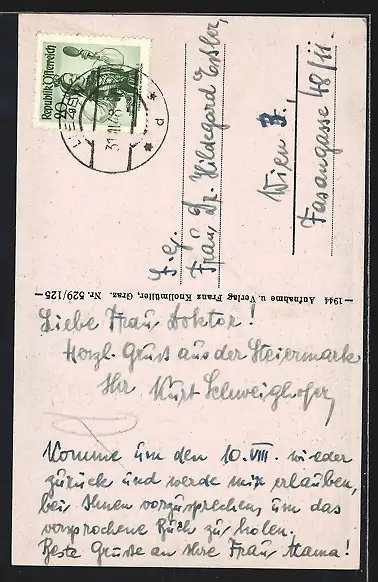 Republik Österreich
20
LIEZEN
31.VII.48
P
S. g.
Frau Dr. Hildegard Esller,
Wien 3.,
Fasangasse 48/11.
—1944 Aufnahme u. Verlag Franz Knollmüller, Graz. Nr. 529/125—
Liebe Frau Doktor!
Herzl. Gruß aus der Steiermark
Ihr Kurt Schweighofer
Komme um den 10. VIII. wieder
zurück und werde mir erlauben,
bei Ihnen vorzusprechen, um das
versprochene Buch zu holen.
Beste Grüsse an Ihre Frau Mama!